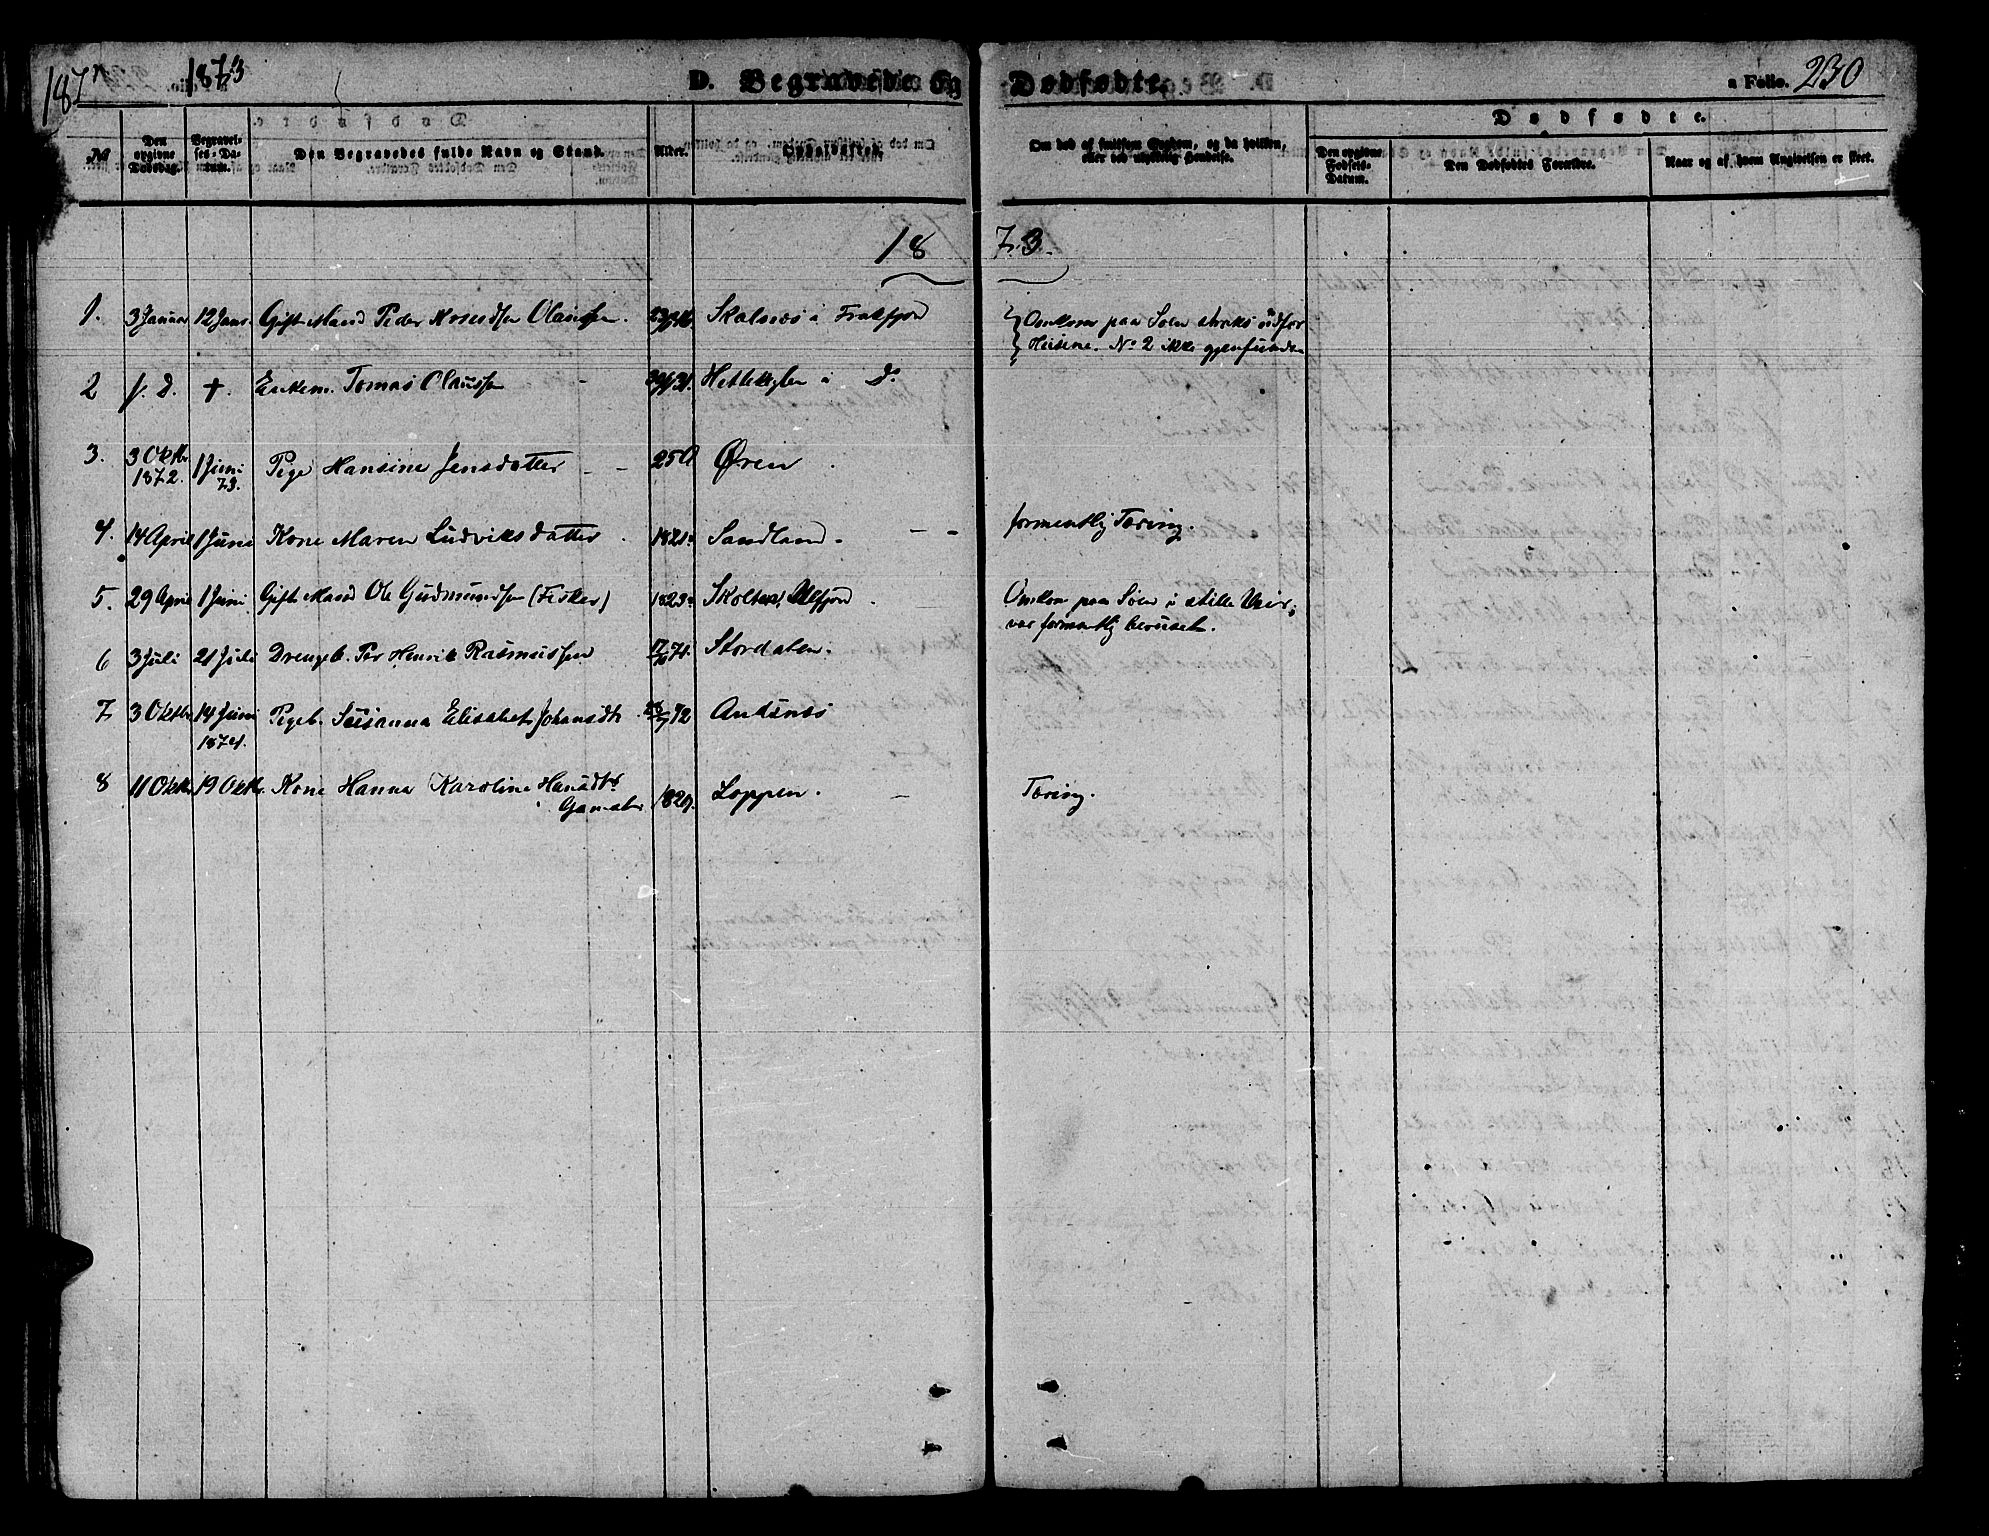 1873
D. Begravede og Dødfødte.
Folio. 230
Dødfødte.
№
Den opgivne Dødsdag.
Begravelses-Datum.
Den Begravedes fulde Navn og Stand.
Alder.
Om død af smitsom Sygdom, og da hvilken, eller ved ulykkelig Hendelse.
Den opgivne Fødsels-Datum.
Den Dødfødtes Forældre.
Naar og af hvem Angivelsen er skeet.
1873.
1. 3 Januar 12 Janr. Gift Mand Peder Olaussen. Skalnæs i Frakfjord Omkom paa Søen straks udfor
No 2 ikke gjenfunden
2 s. D. +. Enkem. Tomas Olaussen i Do
3. 3 Oktbr 1872. 1 Juni 73. Pige Hansine Jensdatter 25 A Øren
4. 14 April 1 Juni Kone Maren Ludviksdatter 1821 Sandland. formentlig Tæring.
5. 29 April 1 Juni Gift Mand Ole Gudmundsen (Fisker) 1823 Ulfjord Omkom paa Søen i stille Veir;
var formentlig beruset.
6 3 Juli 21 Juli Drengeb. Per Henrik Rasmussen 71. Stordalen.
7 3 Oktbr 14 Juni 1874. Pigeb. Susanna Elisabet Johansdtr 72 Andsnæs
8 11 Oktbr 19 Oktbr. Kone Hanna Karoline Hansdtr 1829. Loppen. Tæring.